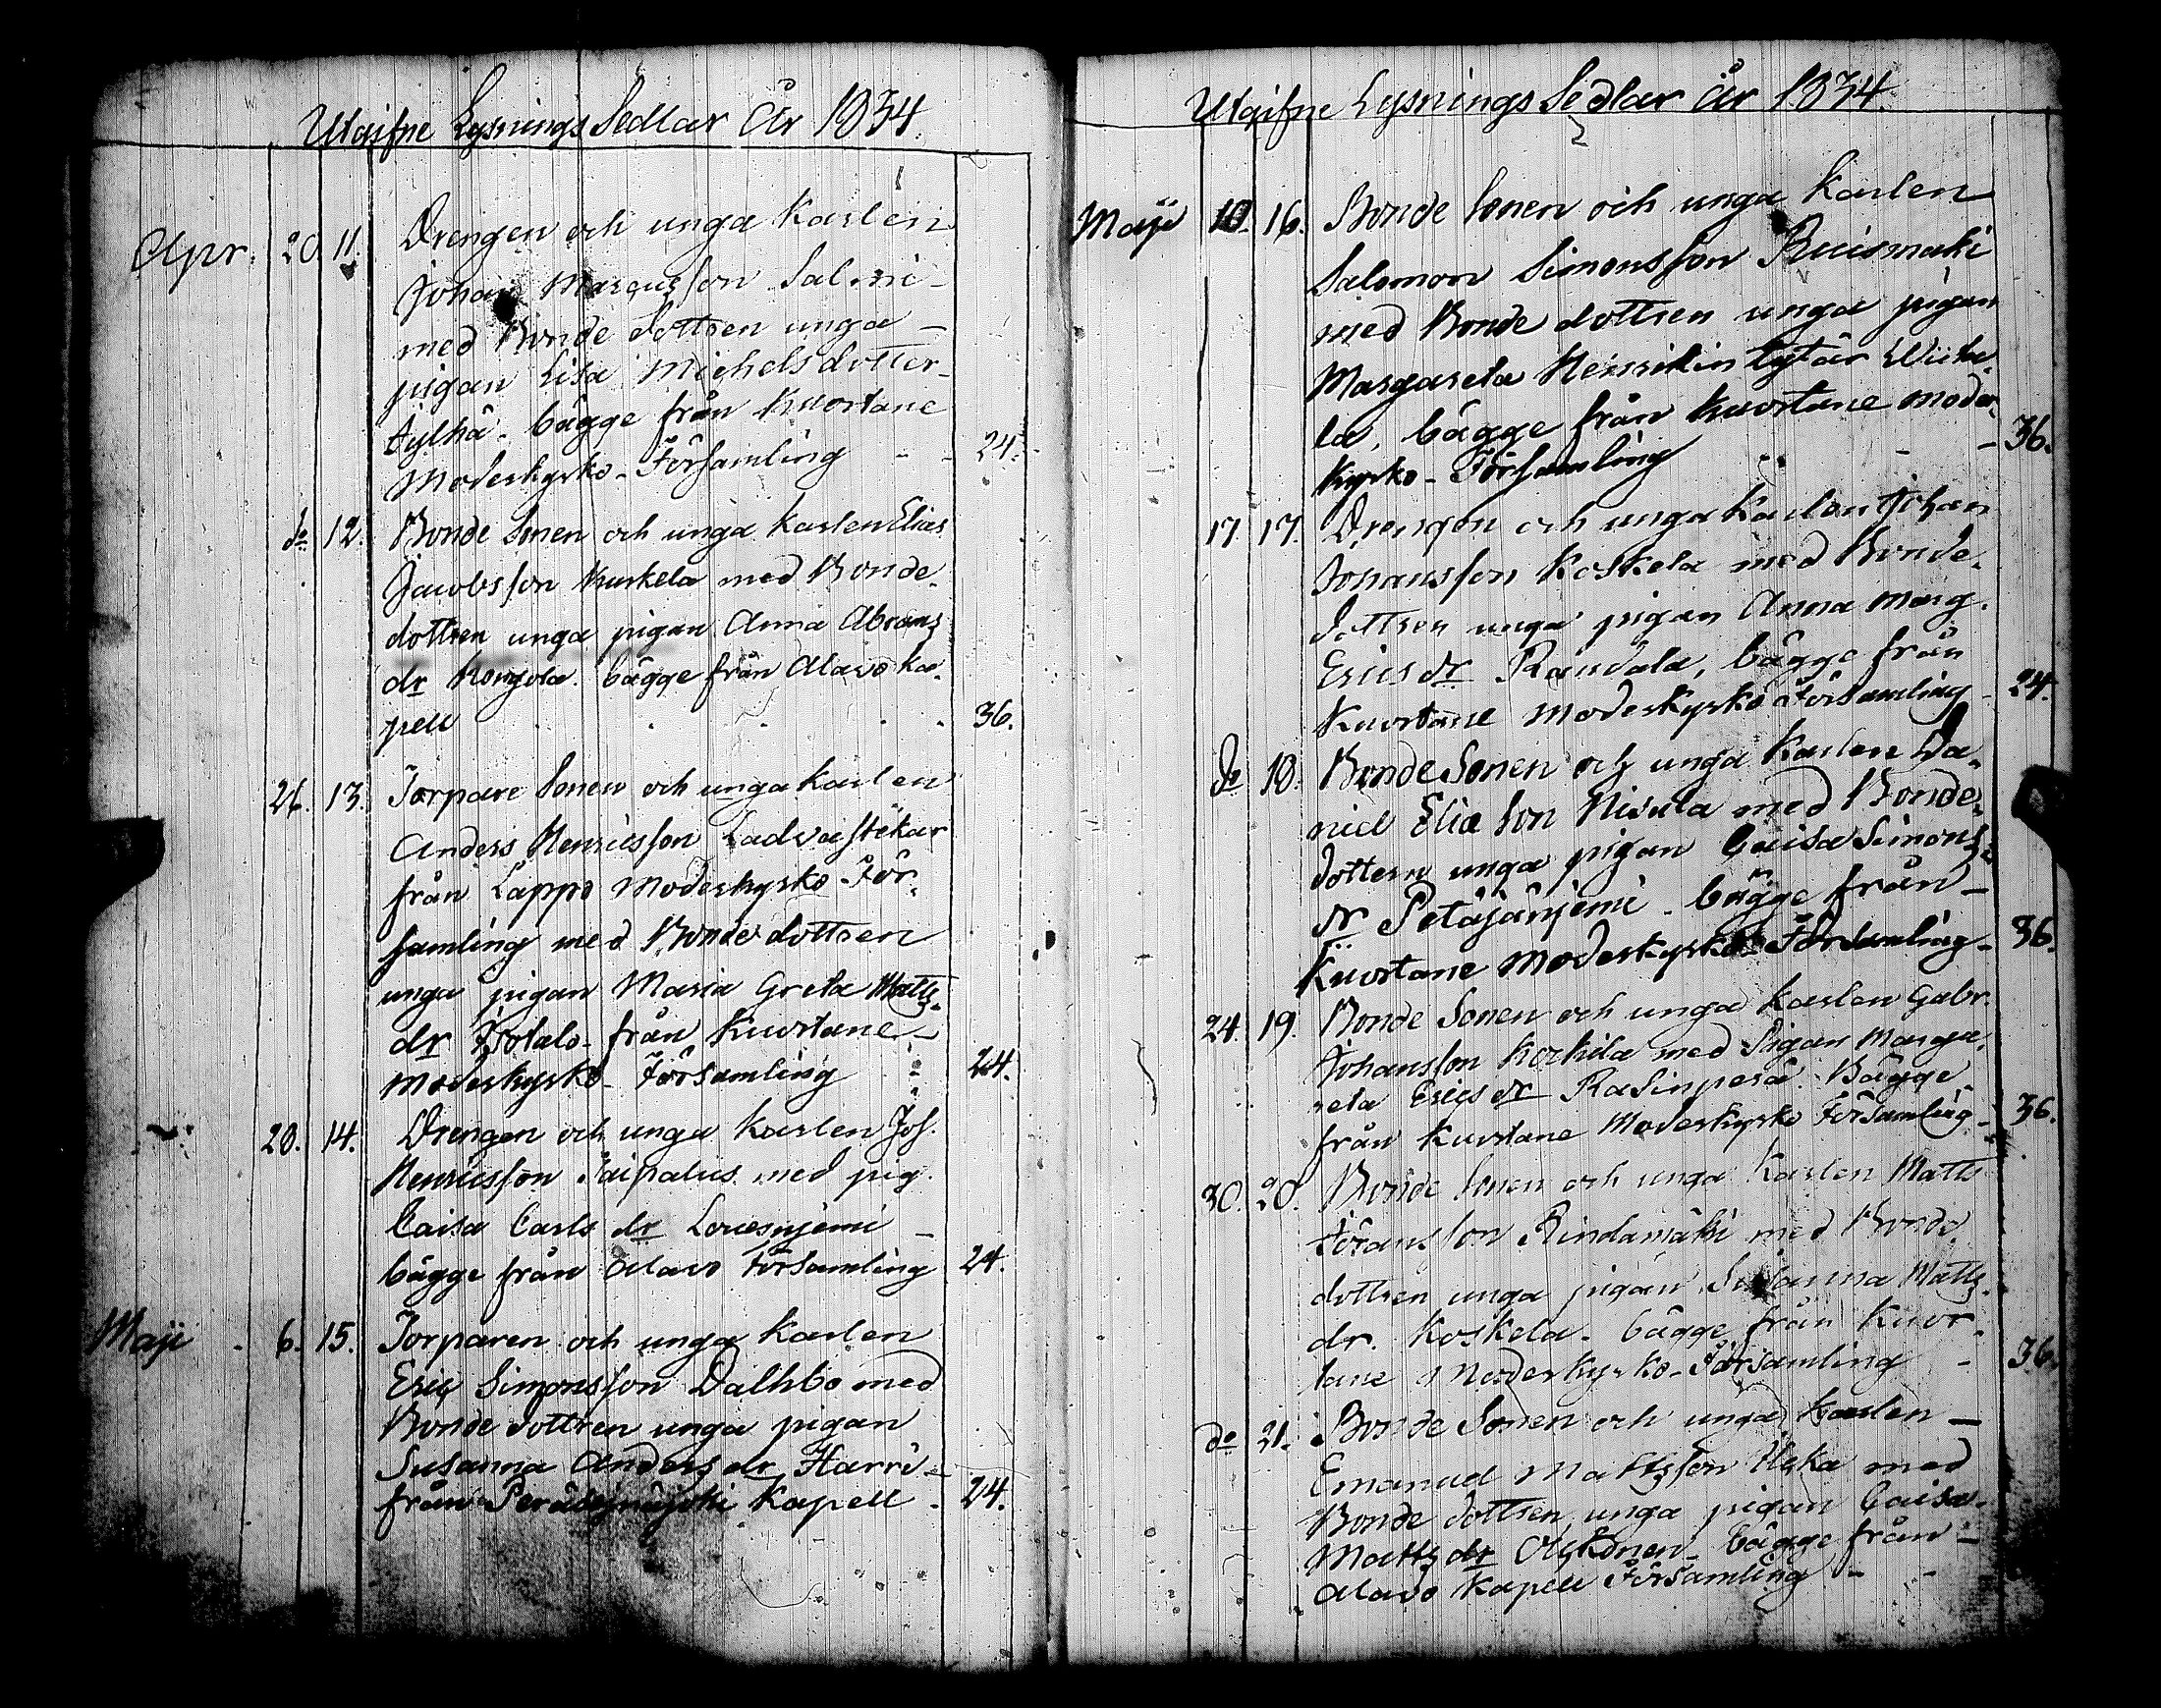 Utgifne Lysnings Sedlar År 1834.
Apr. 20. 11. Drengen och unga Karlen
Johan Marcusson Salmi
med Bonde dottren unga
pigan Lisa Michelsdotter
Sylhä. bägge från Kuortane
Moderkyrko-Församling - - 24.
do 12. Bonde Sonen och unga Karlen Elias
Jacobsson Kuskela med Bonde
dottren unga pigan Anna Abrams
dr Kongola. bägge från Alavo Ka-
pell . . . . 36.
26. 13. Torpare Sonen och unga Karlen
Anders Henricsson
från Lappo Moderkyrko-För-
samling med Bonde dottren
unga pigan Maria Greta Matts
dr från Kuortane
Moderkyrko-Församling 24.
28. 14. Drengen och unga Karlen Joh.
Henricsson Saipalus med pig.
Caisa Carls dr Louesnjemi
bägge från Alavo Församling 24.
Maji 6. 15. Torparen och unga Karlen
Eric Simonsson Dalhbo med
Bonde dottren unga pigan
Susanna Anders dr Harri
från Peräseinäjoki Kapell 24.
Utgifne Lysnings Sedlar År 1834.
Maji 10. 16. Bonde Sonen och unga Karlen
Salomon Simonsson Ruismäki
med Bonde dottren unga pigan
Margareta Henrikin tytär Wiita-
la, bägge från Kuortane moder-
kyrko-Församling - - 36.
17. 17. Drengen och unga Karlen Johan
Johansson Koskela med Bonde
dottren unga pigan Anna Marg.
Erics dr Randala, bägge från
Kuortane Moderkyrko Församling 24.
do 18. Bonde Sonen och unga Karlen Da-
niel Elia Son Nisula med Bonde
dottren unga pigan Caisa Simons
dr Petäjänjemi. bägge från
Kuortane Moderkyrko Församling 36.
24. 19. Bonde Sonen och unga Karlen Gabr.
Johansson Korkila med Pigan Marga-
reta Erics dr Rasinperä. Bägge
från Kuortane Moderkyrko Församling 36.
30. 20. Bonde Sonen och unga Karlen Matts
Johansson Rindamäki med Bonde
dottren unga pigan Susanna Matts
dr. Koskela. bägge från Kuor-
tane Moderkyrko-Församling - 36.
do 21. Bonde Sonen och unga Karlen
Emanuel Mattsson Uska med
Bonde dottren unga pigan Caisa
Matts dr Oiskonen. bägge från
Alavo Kapell Församling - -